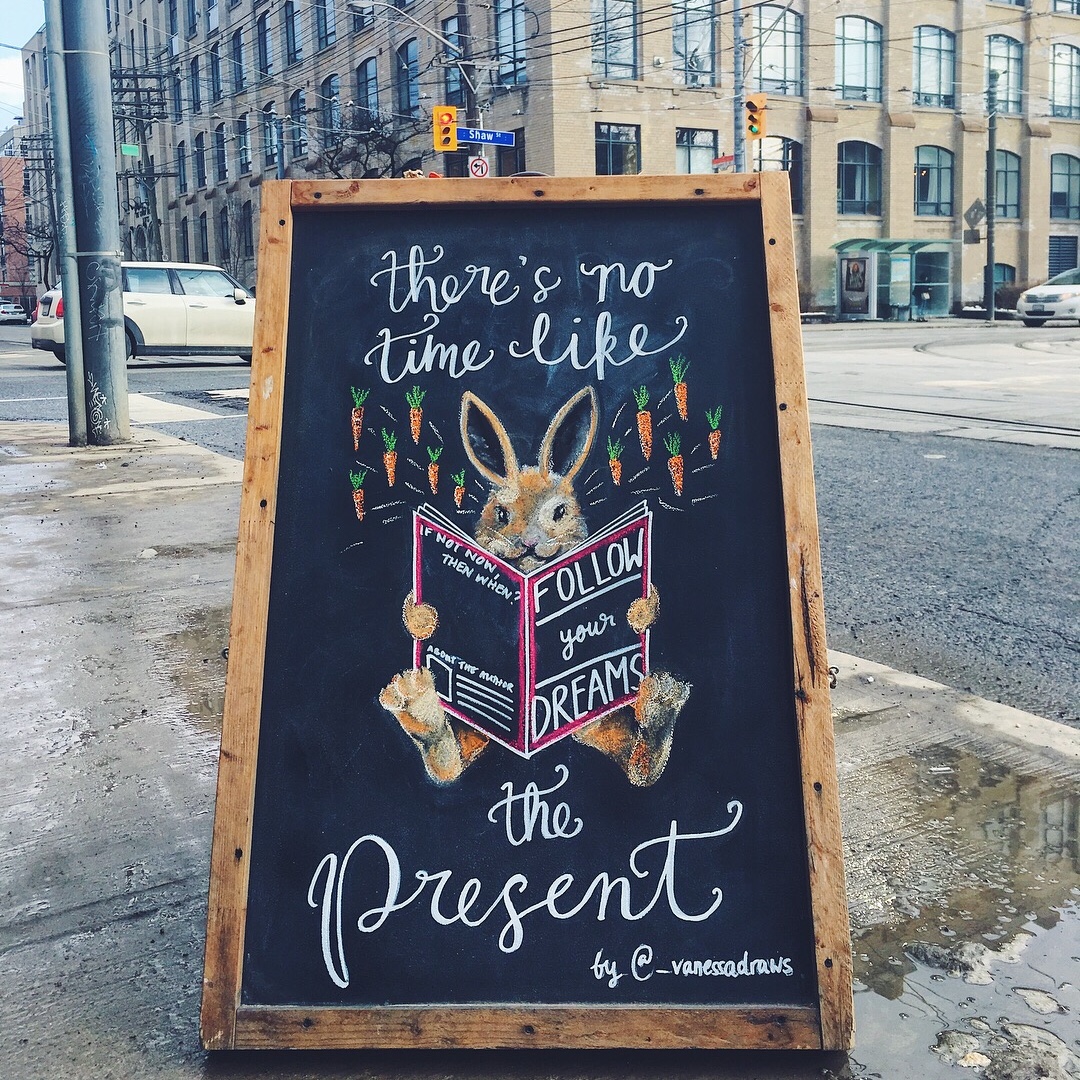 Shaw St
there's no
time like
IF NOT NOW,
THEN WHEN?
ABOUT THE AUTHOR
FOLLOW
your
DREAMS
the
Present
by @_vanessadraws